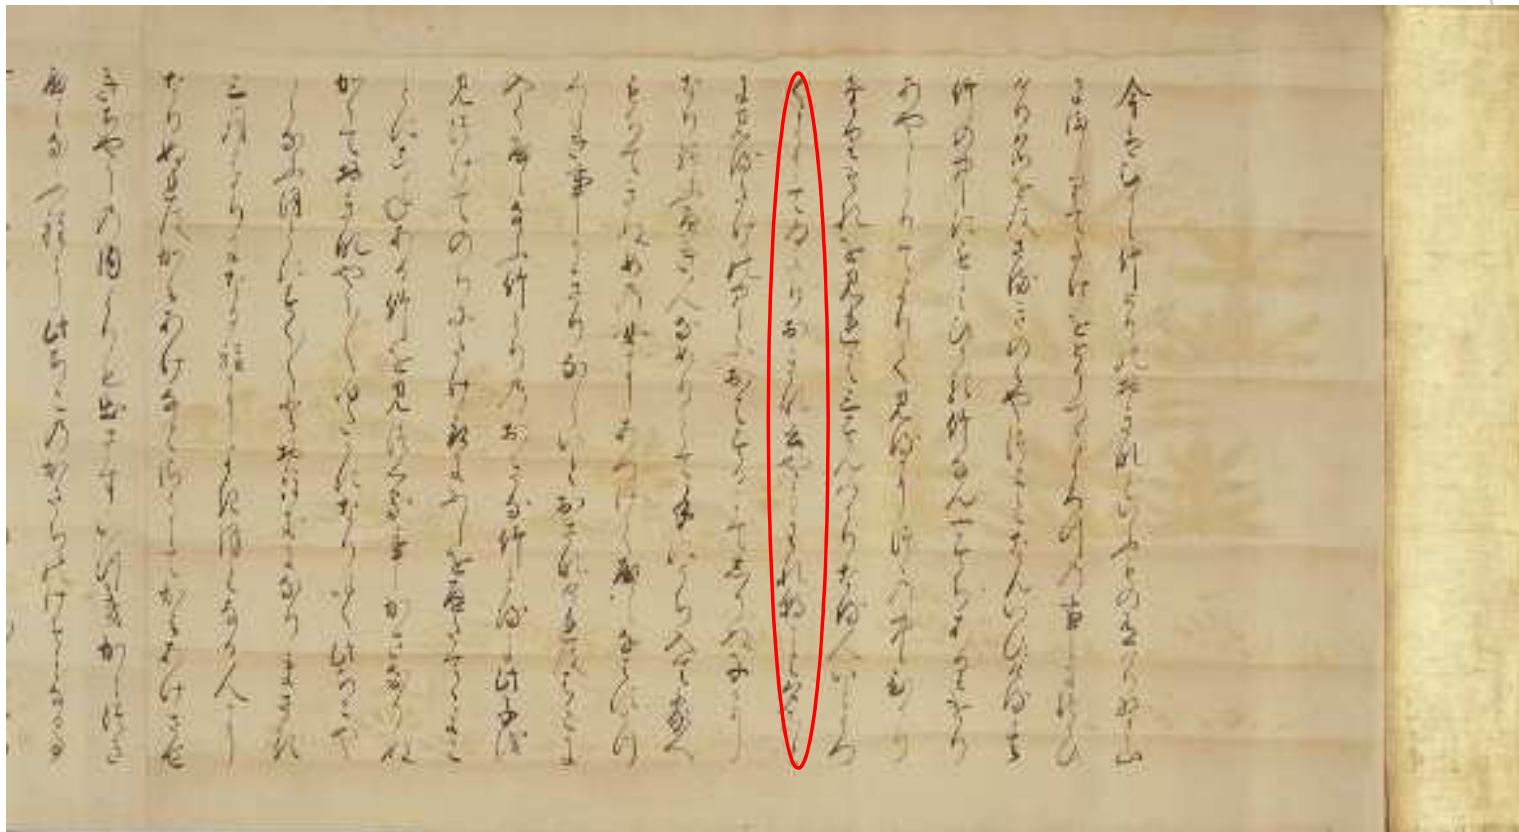 今はむかし竹とりのおきなといふもの有けり野山
にましりてたけをとりつゝよろつの事につかひ
けり名をはさるきのみやつことなんいひける其
竹の中にもとひかる竹なん一すちありけり
あやしかりてよりて見るにつゝの中ひかり
たりそれを見れは三すんはかりなる人いとう
つくしうてゐたりおきな云やうわれ朝こと夕
ことにみる竹の中におはするにてしりぬ子に
なり給ふへき人なめりとて手にいれて家へ
もちてきぬめの女にあつけてやしなはすうつ
くしき事かきりなしいとおさなけれははこに
入てやしなふ竹とりのおきな竹とるに此子を
見つけてのちにたけとるにふしをへたてゝよこ
とにこかねある竹を見つくる事かさなりぬ
かくておきなやう〳〵ゆたかになり行此ちこや
しなふ程にすく〳〵とおほきになりまさる
三月はかりになる程によき程なる人に
なりぬれはかみあけなとさうしてかみあけさせ
きちやうの内よりも出さすいつきかしつき
やしなふ程に此ちこのかたちけそうなる